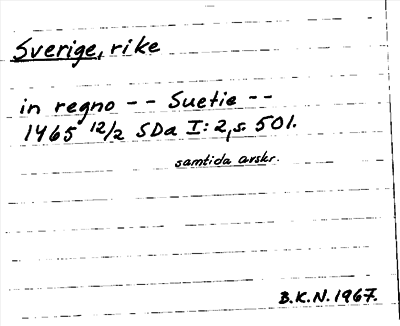 Sverige, rike
in regno -- Suetie --
1465 12/2 SDa I:2, s. 501.
samtida avskr.
B.K.N. 1967.